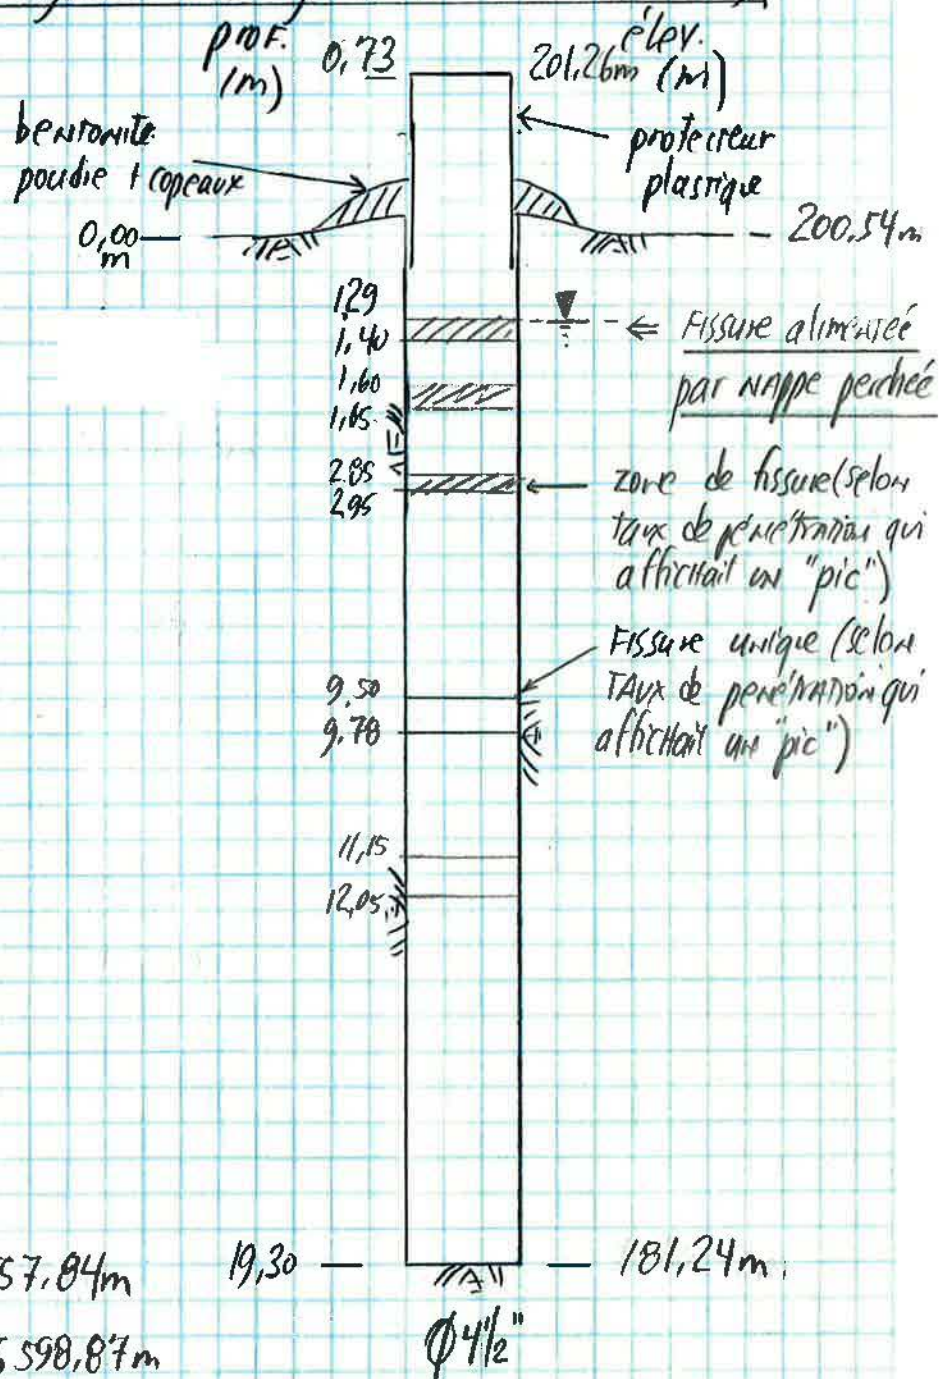 prof.
(m)
0,73
élev.
201,26m (m)
bentonite
poudre + copeaux
protecteur
plastique
0,00
m
200,54m
1,29
1,40
Fissure alimentée
par nappe perchée
1,60
1,65
2.85
2,95
zone de fissure (selon
taux de pénétration qui
affichait un "pic")
Fissure unique (selon
taux de pénétration qui
affichait un "pic")
9.50
9,78
11,15
12,05
57,84m
19,30
181,24m
598,87m
Ø 4 1/2"